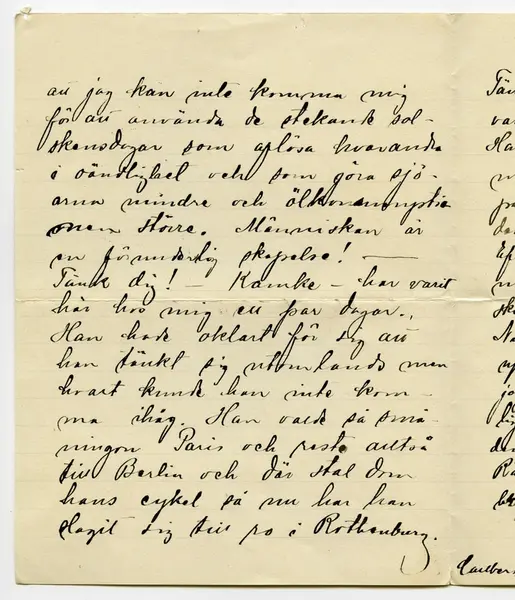 att jag kan inte komma mig
för att använda de stekande sol-
skensdagar som aflösa hvarandra
i oändlighet och som göra sjö-
arna mindre och ölkonsumptio
nen större. Människan är
en förunderlig skapelse! —
Tänk dig! — Kamke — har varit
här hos mig ett par dagar.,
Han hade oklart för sig att
han tänkt sig utomlands men
hvart kunde han inte kom-
ma ihåg. Han valde så små-
ningom Paris och reste alltså
till Berlin och där stal dom
hans cykel så nu har han
slagit sig till ro i Rothenburg.
Tän
va
Ha
m
pa
da
Ef
m
sk
Na
up
jo
di
den
Ra